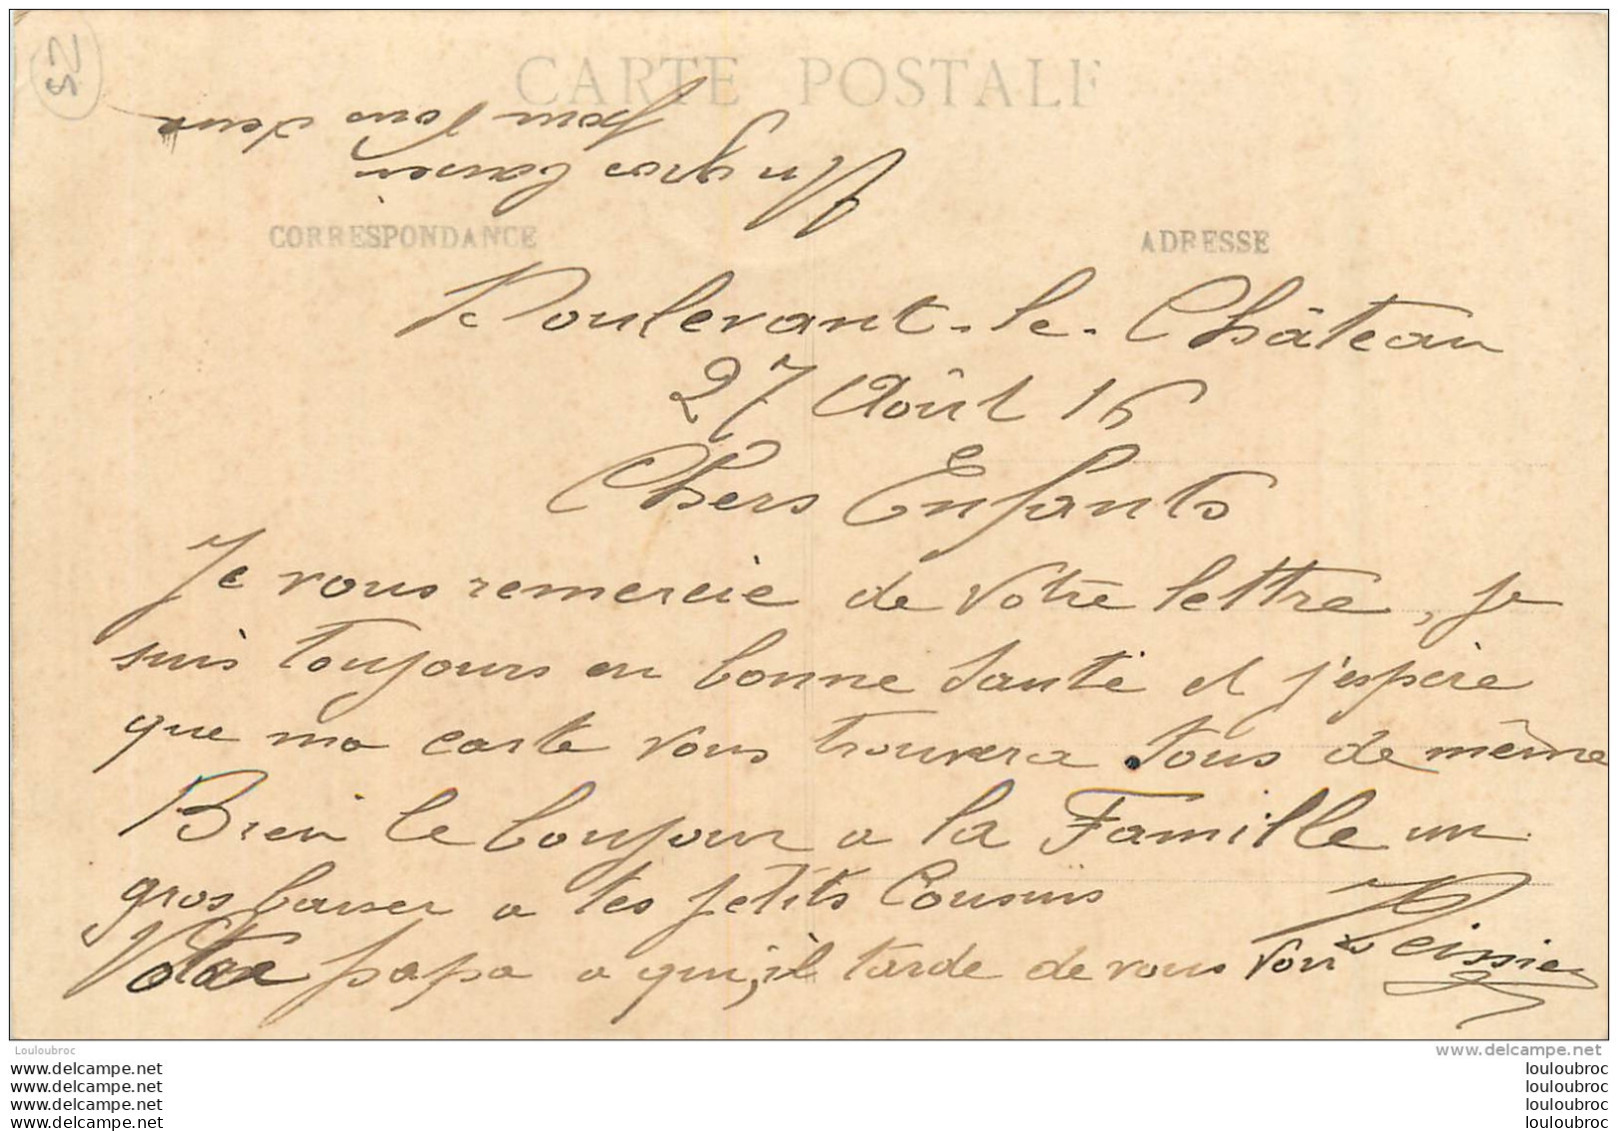 25
CARTE POSTALE
Un gros baiser
pour vous deux
CORRESPONDANCE
ADRESSE
Doulevant-le-Château
27 Août 16
Chers Enfants
Je vous remercie de votre lettre, je
suis toujours en bonne santé et j'espère
que ma carte vous trouvera tous de même
Bien le bonjour a la Famille un
gros baiser a tes petits Cousins
Votre papa a qui, il tarde de vous voir
Louloubroc
www.delcampe.net
louloubroc
louloubroc
louloubroc
louloubroc
www.delcampe.net
www.delcampe.net
www.delcampe.net
www.delcampe.net